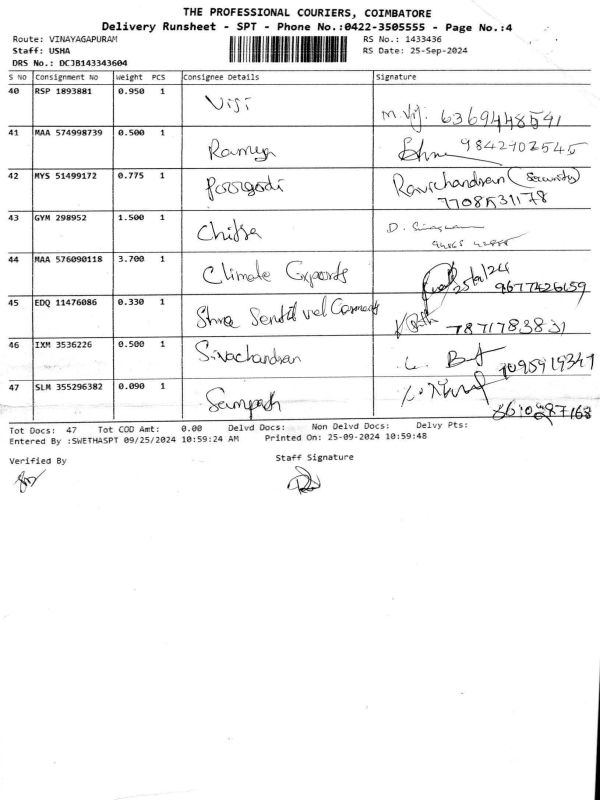 THE PROFESSIONAL COURIERS, COIMBATORE
Delivery Runsheet - SPT - Phone No.:0422-3505555 - Page No.:4
Route: VINAYAGAPURAM RS No.: 1433436
Staff: USHA RS Date: 25-Sep-2024
DRS No.: DCJB143343604
S No Consignment No Weight PCS Consignee Details Signature
40 RSP 1893881 0.950 1 Viji M. Viji 6369448541
41 MAA 574998739 0.500 1 Ramya 9842902545
42 MYS 51499172 0.775 1 Poorgodi Ravichandran (Security)
7708531178
43 GYM 298952 1.500 1 Chitra
44 MAA 576090118 3.700 1 Climate Exports 25/09/24
9677426159
45 EDQ 11476086 0.330 1 Shree Senthil vel 7871783831
46 IXM 3536226 0.500 1 Sivachandran 7095919347
47 SLM 355296382 0.090 1 Sampath
Tot Docs: 47 Tot COD Amt: 0.00 Delvd Docs: Non Delvd Docs: Delvy Pts:
Entered By :SWETHASPT 09/25/2024 10:59:24 AM Printed On: 25-09-2024 10:59:48
Verified By Staff Signature